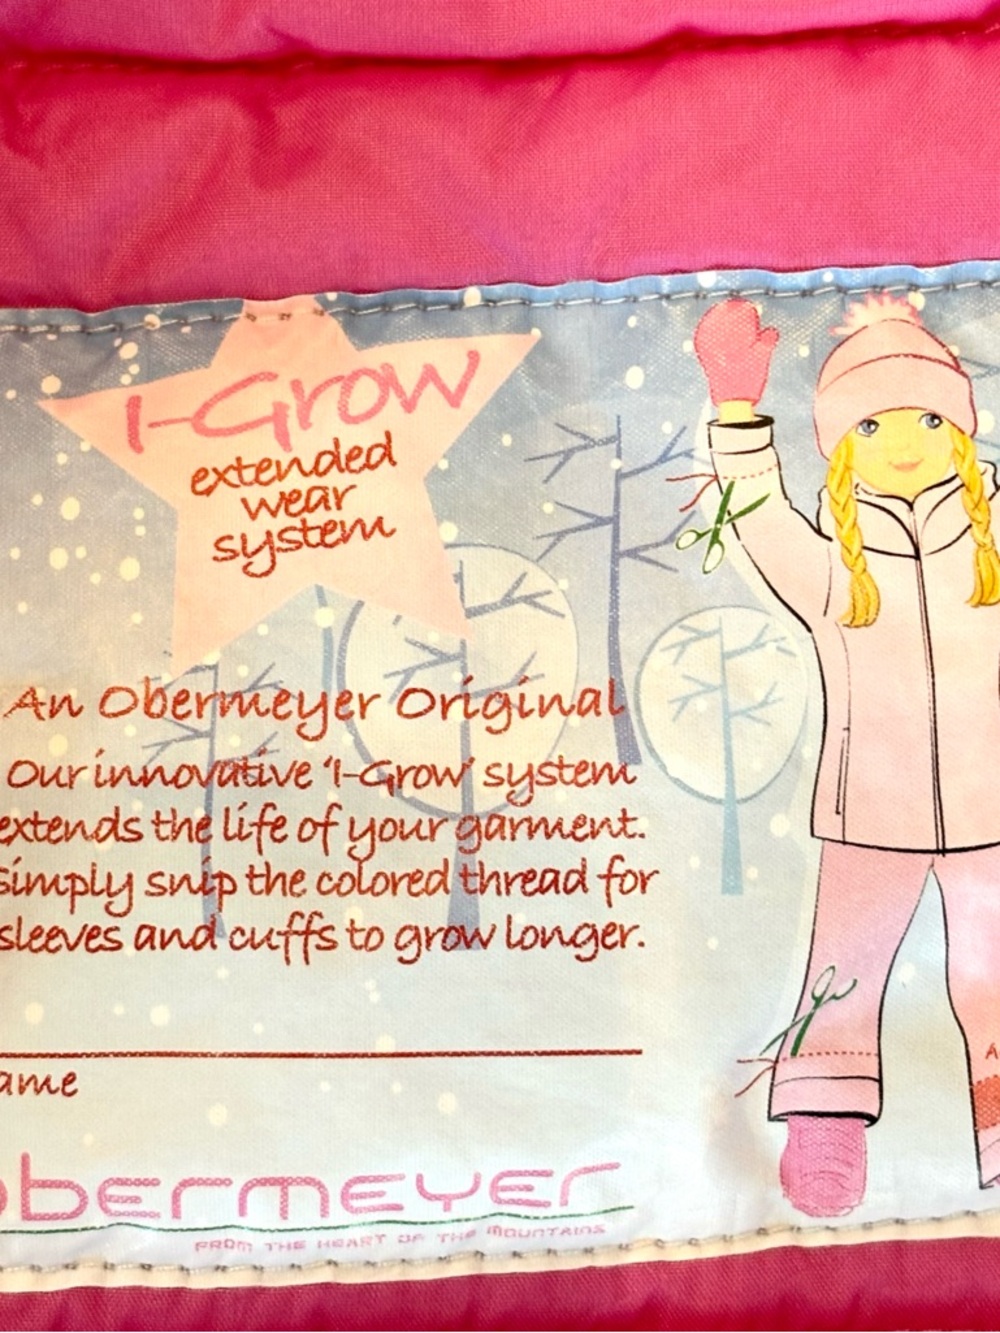 I-Grow
extended
wear
system
An Obermeyer Original
Our innovative 'I-Grow' system
extends the life of your garment.
Simply snip the colored thread for
sleeves and cuffs to grow longer.
ame
obermeyer
FROM THE HEART OF THE MOUNTAINS